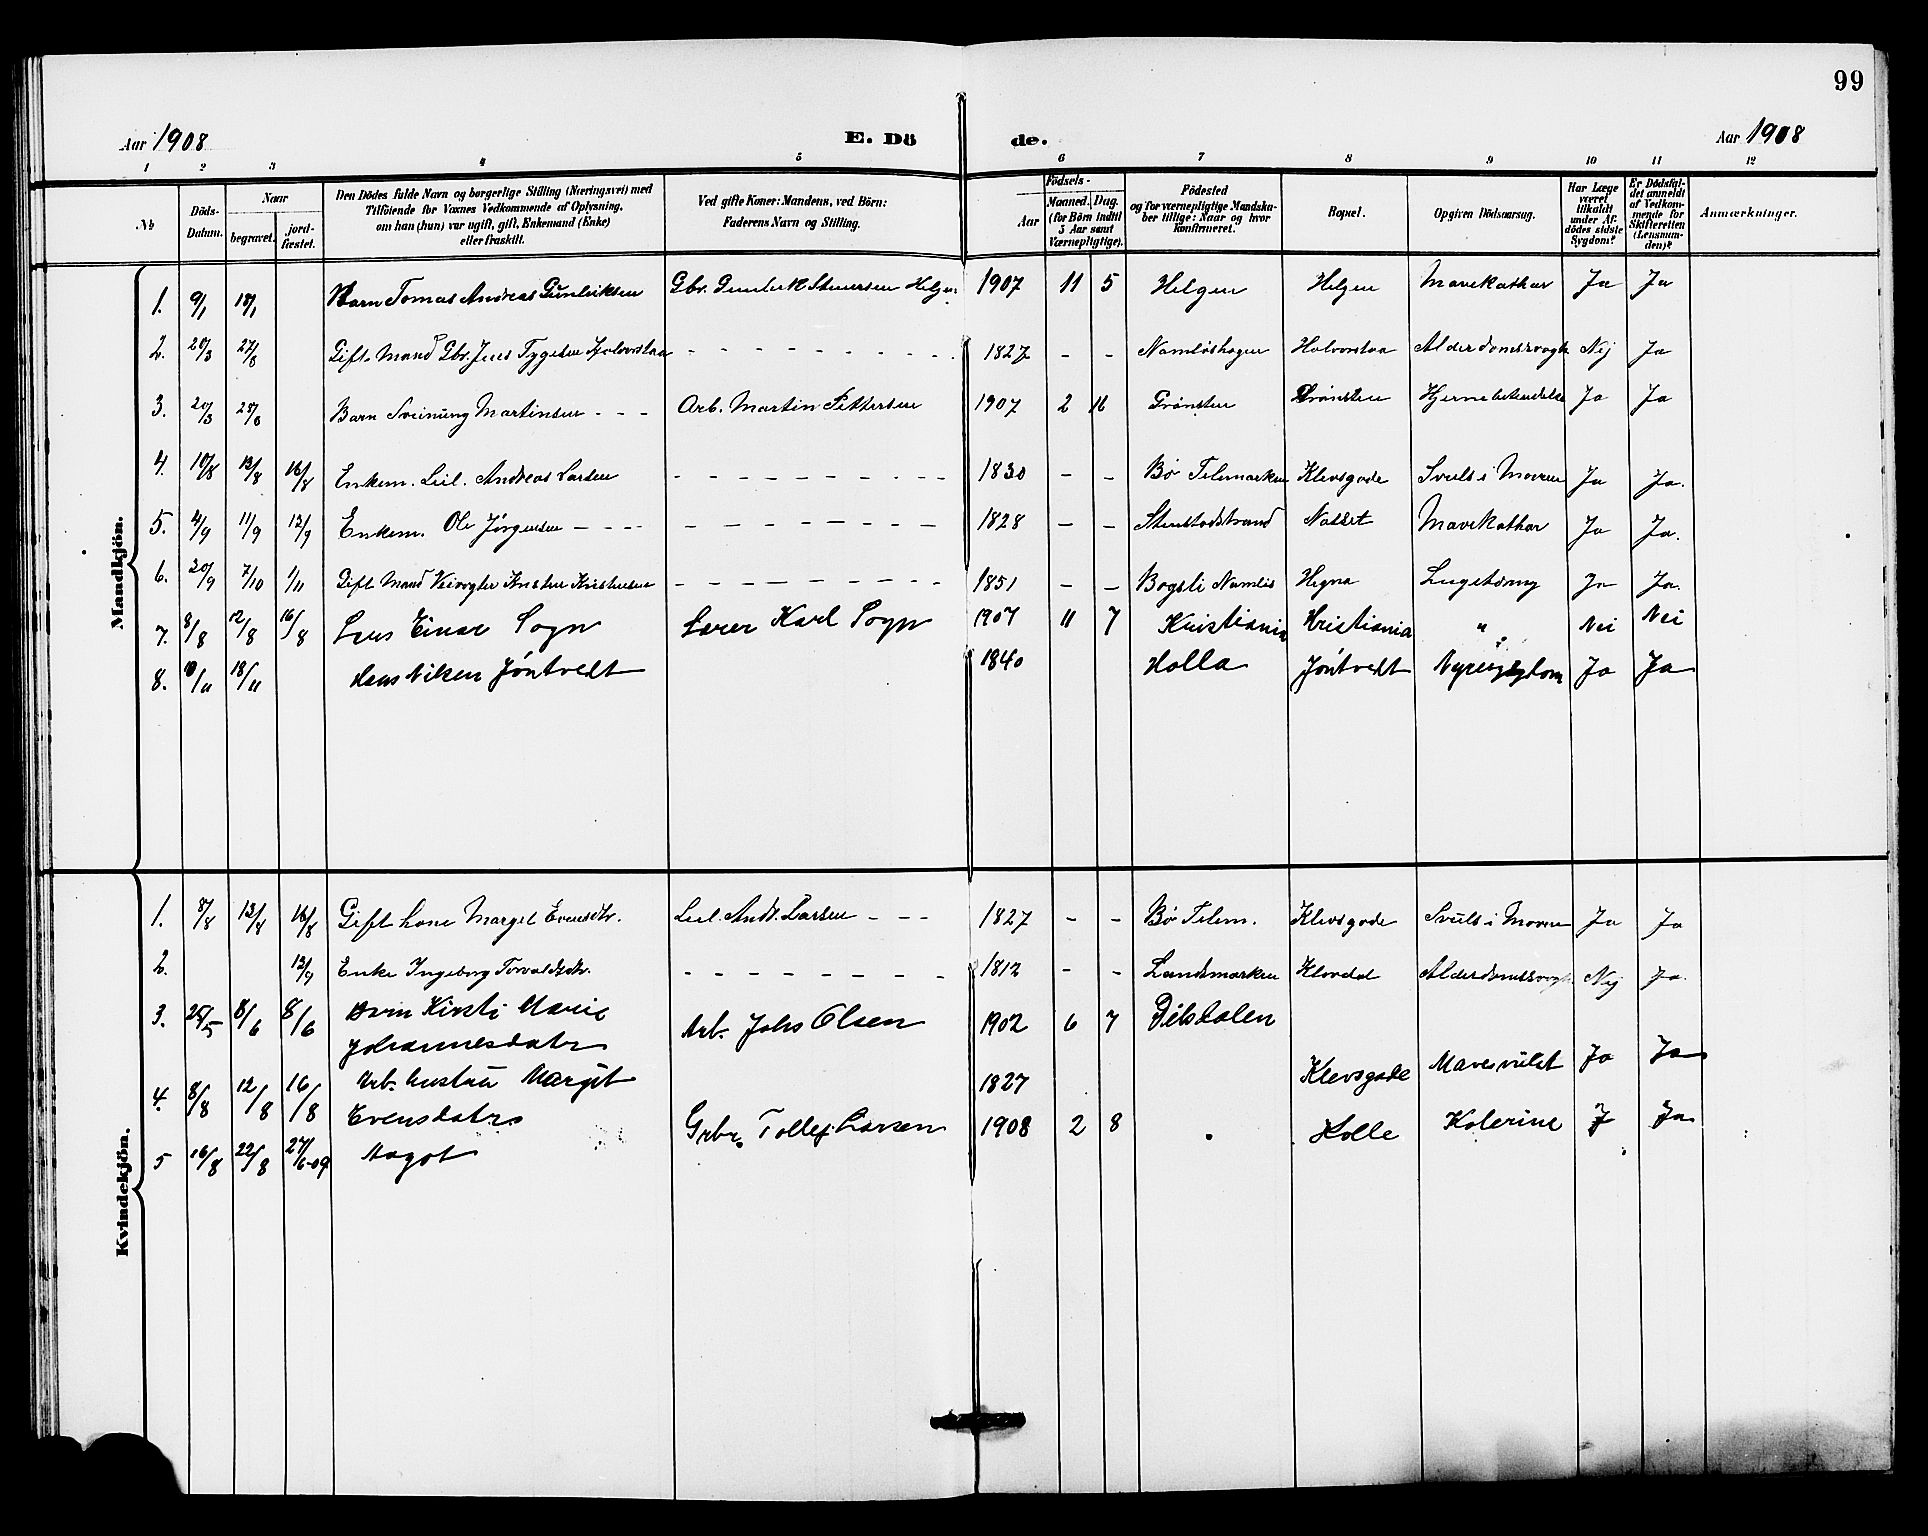 99
Aar 1908 E. Dö de. Aar 1908
1 2 3 4 5 6 7 8 9 10 11 12
No
Döds-Datum.
Naar
begravet.
jordfæstet.
Den Dödes fulde Navn og borgerlige Stilling (Næringsvei) med
Tilföiende for Voxnes Vedkommende af Oplysning,
om han (hun) var ugift, gift, Enkemand (Enke)
eller fraskilt.
Ved gifte Koner: Mandens, ved Börn:
Faderens Navn og Stilling.
Födsels-
Aar
Maaned. Dag.
(for Börn indtil
5 Aar samt
Værnepligtige).
Födested
og for værnepligtige Mandska-
ber tillige: Naar og hvor
konfirmeret.
Bopæl.
Opgiven Dödsaarsag.
Har Læge
været
tilkaldt
under Af-
dödes sidste
Sygdom?
Er Dödsfal-
det anmeldt
af Vedkom-
mende for
Skifteretten
(Lensman-
den)?
Anmærkninger.
Mandkjön.
1. 9/1 18/1 Barn Tomas Andreas Gunleiksen Gbr. Gunleik Steensen Helgen 1907 11 5 Helgen Helgen Mavekathar Ja Ja
2. 20/3 27/8 Gift Mand Gbr. Jens Tygesen Halvorstaa - - - 1827 - - Namløshagen Halvorstaa Alderdomssvagh Nej Ja
3. 20/3 28/6 Barn Sveinung Martinsen - - - Arb. Martin Pettersen 1907 2 16 Grønsten Grønsten Hjernebetændelse Ja Ja
4. 10/8 13/8 16/8 Enkem. Leil. Andreas Larsen - - - 1830 - - Bø Telemarken Klevsgade Svulst i Maven Ja Ja.
5. 4/9 11/9 12/9 Enkem. Ole Jørgensen - - - 1828 - - Stenstadstrand Naset Mavekathar Ja Ja.
6. 20/9 7/10 1/11 Gift Mand Veivogter Kristen Kristensen - - - 1851 - - Bogsli Namløs Hegna Lugebetæng Ja Ja.
7. 8/8 12/8 16/8 Lars Einar Sogn Lærer Karl Sogn 1907 11 7 Kristiania Kristiania " Nei Nei
8. 10/11 18/11 Hans Nilsen Jøntvedt 1840 Holla Jøntvedt Nyresygdom Ja Ja
Kvindekjön.
1. 8/8 13/8 16/8 Gift kone Margit Evensdtr. Leil. Andr. Larsen - - - 1827 - - Bø Telem. Klevsgade Svulst i Maven Ja Ja
2. 12/9 Enke Ingeborg Torvaldsdtr. - - - 1812 - - Landsmarken Klovdal Alderdomssvagh Nej Ja.
3. 25/5 8/6 8/6 Barn Kirsti Marie Arb. Johs Olsen 1902 6 7 Dilsdalen
Johannesdatr
4. 8/8 12/8 16/8 Arb. hustru Margit 1827 Klevsgade Mavesvulst Ja Ja
Evensdatr
5 16/8 22/8 27/6-09 Aagot Grbr. Tollef Larsen 1908 2 8 Holle Kolerine J Ja